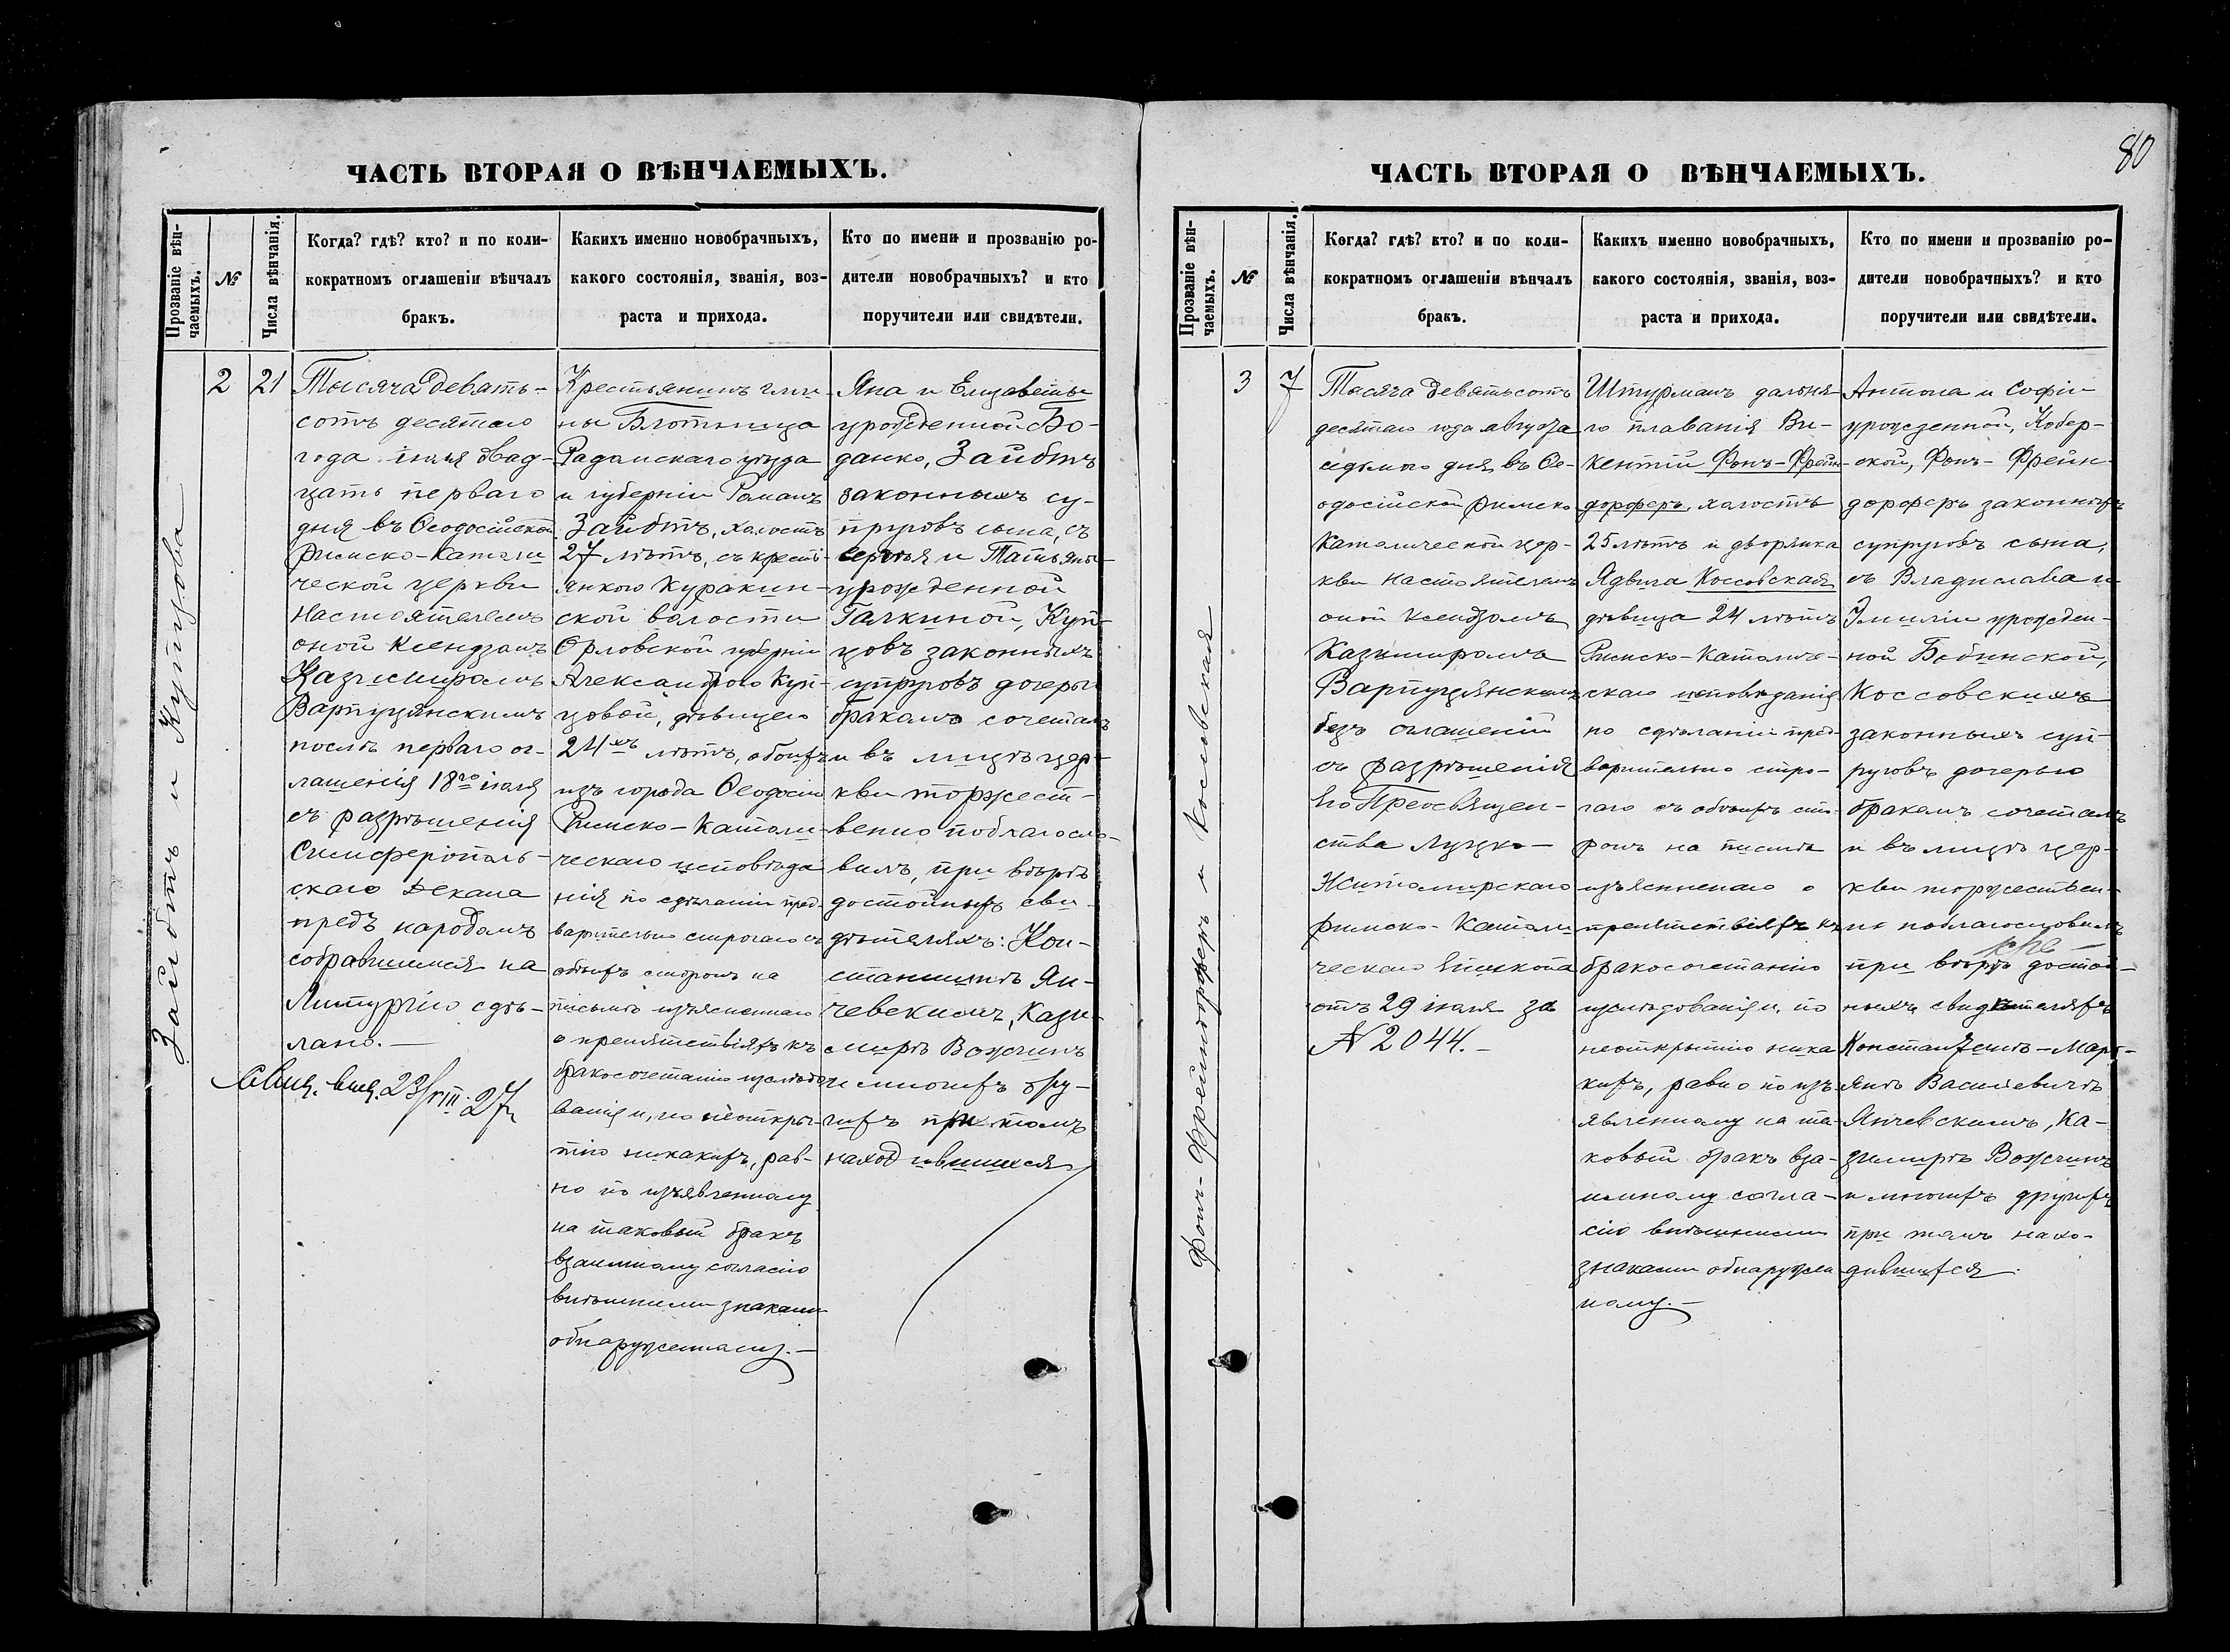 ЧАСТЬ ВТОРАЯ О ВѢНЧАЕМЫХЪ.
Прозваніе вѣн-
чаемыхъ.
№
Числа вѣнчанія.
Когда? гдѣ? кто? и по коли-
кократномъ оглашеніи вѣнчалъ
бракъ.
Какихъ именно новобрачныхъ,
какого состоянія, званія, воз-
раста и прихода.
Кто по имени и прозванію ро-
дители новобрачныхъ? и кто
поручители или свидѣтели.
Зайбтъ и Купцова
2
21
Тысяча девять-
сотъ десятаго
года іюля двад-
цать перваго
дня въ Ѳеодосійской
Римско-Католи
ческой церкви
Настоятелемъ
оной Ксендзомъ
Казимиромъ
Варпуцянскимъ
послѣ перваго ог-
лашенія 18го іюля
съ разрѣшенія
Симферополь-
скаго Декана
предъ народомъ
собравшимся на
Литургію сдѣ-
лано.—
23/VIII 27
Крестьянинъ гми-
ны Блотница
Радомскаго уѣзда
и губерніи Романъ
Зайбтъ, холостъ
27 лѣтъ, съ кресть-
янкою Куракин-
ской волости
Орловской губерніи
Александрою Куп-
цовой, дѣвицею
24хъ лѣтъ, обоихъ
изъ города Ѳеодосіи
Римско-Католи-
ческаго исповѣда
нія по сдѣланіи пред-
варительно строгаго съ
обоихъ сторонъ на
письмѣ изъясненнаго
о препятствіяхъ къ
бракосочетанію изслѣдо
ванія и, по неоткры-
тію никакихъ, рав-
но по изъявленному
на таковый бракъ
взаимному согласію
внѣшними знаками
обнаруженному.—
Яна и Елизаветы
урожденной Бо-
данко, Зайбтъ
законныхъ су-
пруговъ сына, съ
Сергѣя и Татьяны
урожденной
Галкиной, Куп-
цовъ законныхъ
супруговъ дочерью
бракомъ сочеталъ
и въ лицѣ цер-
кви торжест-
венно поблагосло-
вилъ, при вѣрѣ
достойныхъ сви-
дѣтеляхъ: Кон-
стантинѣ Ян-
чевскимъ, Кази-
мирѣ Вожчинъ
и многихъ дру-
гихъ при томъ
находившихся
ЧАСТЬ ВТОРАЯ О ВѢНЧАЕМЫХЪ.
80
Прозваніе вѣн-
чаемыхъ.
№
Числа вѣнчанія.
Когда? гдѣ? кто? и по коли-
кократномъ оглашеніи вѣнчалъ
бракъ.
Какихъ именно новобрачныхъ,
какого состоянія, званія, воз-
раста и прихода.
Кто по имени и прозванію ро-
дители новобрачныхъ? и кто
поручители или свидѣтели.
Фонъ-Фрейндорферъ и Коссовская
3
7
Тысяча девятьсотъ
десятаго года августа
седьмого дня въ Ѳе-
одосійской Римско
Католической цер-
кви Настоятелемъ
оной Ксендзомъ
Казимиромъ
Варпуцянскимъ
безъ оглашеній
съ разрѣшенія
Его Преосвящен-
ства Луцко-
Житомирскаго
Римско-Католи
ческаго Епископа
отъ 29 іюля за
№ 2044.—
Штурманъ дальня-
го плаванія Ви-
кентій Фонъ-Фрейн-
дорферъ, холостъ
25 лѣтъ и дворянка
Ядвига Коссовская
дѣвица 24 лѣтъ
Римско-Католиче-
скаго исповѣданія
по сдѣланіи пред-
варительно стро-
гаго съ обоихъ сто-
ронъ на письмѣ
изъясненнаго о
препятствіяхъ къ
бракосочетанію
изслѣдованія и, по
неоткрытію ника
кихъ, равно по изъ
явленному на та-
ковый бракъ вза-
имному согла-
сію внѣшними
знаками обнаружен
ному.—
Антона и Софіи
урожденной, Кобер-
ской, Фонъ-Фрейн-
дорферъ законныхъ
супруговъ сына,
съ Владислава и
Эмиліи урожден-
ной Бобинской,
Коссовскихъ
законныхъ суп-
руговъ дочерью
бракомъ сочеталъ
и въ лицѣ цер-
кви торжествен-
но поблагословилъ
при вѣрѣ достой-
ныхъ свидѣтеляхъ
Константинѣ-Мар-
янѣ Васильевичѣ
Янчевскимъ, Ка-
зимирѣ Вожчинъ
и многихъ другихъ
при томъ нахо-
дившихся.